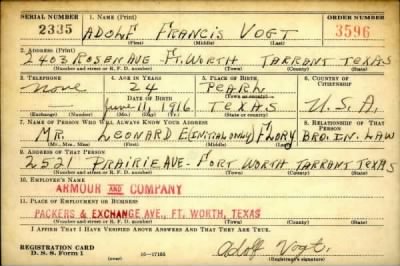 SERIAL NUMBER 1. NAME (Print) ORDER NUMBER
2335 ADOLF FRANCIS VOGT 3596
(First) (Middle) (Last)
2. ADDRESS (Print)
2403 ROSEN AVE - FT. WORTH TARRANT TEXAS
(Number and street or R. F. D. number) (Town) (County) (State)
3. TELEPHONE 4. AGE IN YEARS 5. PLACE OF BIRTH 6. COUNTRY OF CITIZENSHIP
None 24 PEARN
DATE OF BIRTH (Town or county)
June 11, 1916 TEXAS U.S.A.
(Exchange) (Number) (Mo.) (Day) (Yr.) (State or country)
7. NAME OF PERSON WHO WILL ALWAYS KNOW YOUR ADDRESS 8. RELATIONSHIP OF THAT PERSON
MR. LEONARD E (INITIAL ONLY) FLORY BRO. IN. LAW
(Mr., Mrs., Miss) (First) (Middle) (Last)
9. ADDRESS OF THAT PERSON
2521 PRAIRIE AVE - FORT WORTH TARRANT TEXAS
(Number and street or R. F. D. number) (Town) (County) (State)
10. EMPLOYER'S NAME
ARMOUR AND COMPANY
11. PLACE OF EMPLOYMENT OR BUSINESS
PACKERS & EXCHANGE AVE., FT. WORTH, TEXAS
(Number and street or R. F. D. number) (Town) (County) (State)
I AFFIRM THAT I HAVE VERIFIED ABOVE ANSWERS AND THAT THEY ARE TRUE.
REGISTRATION CARD
D. S. S. Form 1 (over) 16-17105 Adolf Vogt.
(Registrant's signature)